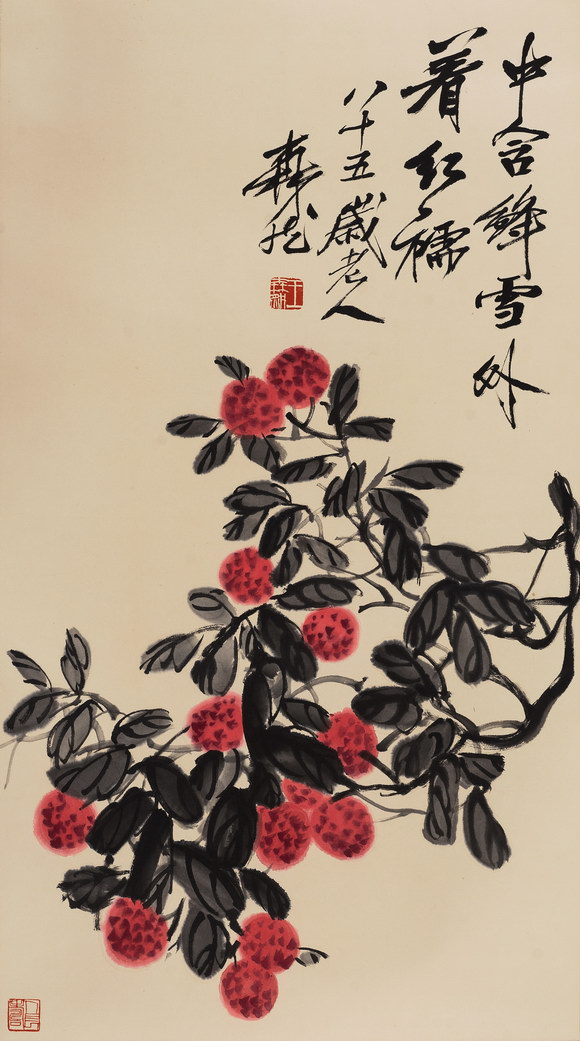 中含絳雪外
着红襦
八十五歲老人
森然